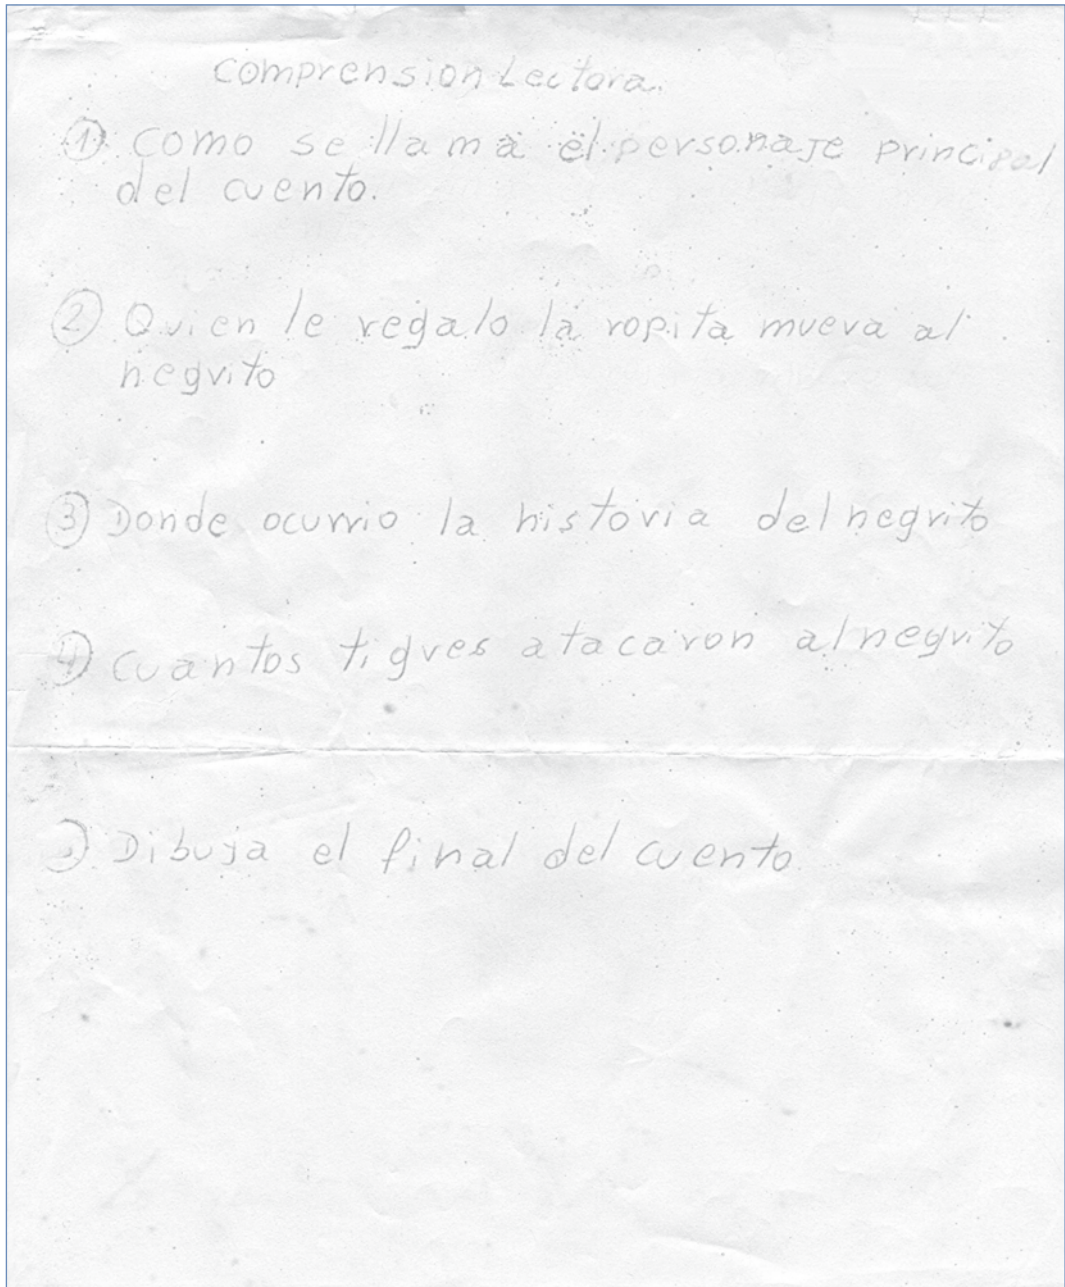 Comprension Lectora.
① Como se llama el personaje principal
del cuento.
② Quien le regalo la ropita mueva al
negrito
③ Donde ocurrio la historia del negrito
④ Cuantos tigres atacaron al negrito
⑤ Dibuja el final del cuento